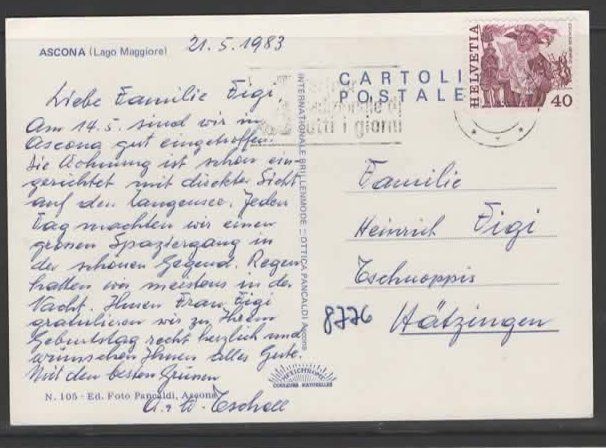 ASCONA (Lago Maggiore)
21.5.1983
Liebe Familie Figi,
Am 14.5. sind wir in
Ascona gut eingetroffen.
Die Wohnung ist schön ein-
gerichtet mit direkter Sicht
auf den Langensee. Jeden
Tag machten wir einen
grossen Spaziergang in
der schönen Gegend. Regen
hatten wir meistens in der
Nacht. Ihnen Frau Figi
gratulieren wir zu Ihrem
Geburtstag recht herzlich und
wünschen Ihnen alles Gute.
Mit den besten Grüssen
A. + W. Tschall
N. 105 - Ed. Foto Pancaldi, Ascona
INTERNATIONALE BRILLENMODE OTTICA PANCALDI Ascona
CARTOLI
POSTALE
tutti i giorni
HELVETIA
40
Familie
Heinrich Figi
Tschnoppis
8776 Hätzingen